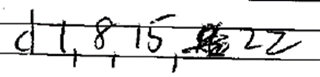 d 1, 8, 15, 22